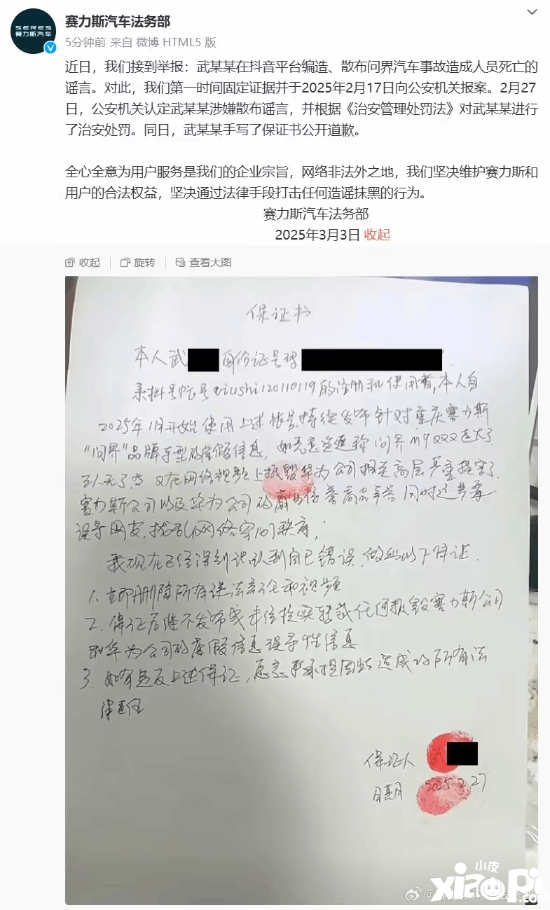 SERES
赛力斯汽车
赛力斯汽车法务部
5分钟前 来自 微博 HTML5 版
近日，我们接到举报：武某某在抖音平台编造、散布问界汽车事故造成人员死亡的
谣言。对此，我们第一时间固定证据并于2025年2月17日向公安机关报案。2月27
日，公安机关认定武某某涉嫌散布谣言，并根据《治安管理处罚法》对武某某进行
了治安处罚。同日，武某某手写了保证书公开道歉。
全心全意为用户服务是我们的企业宗旨，网络非法外之地，我们坚决维护赛力斯和
用户的合法权益，坚决通过法律手段打击任何造谣抹黑的行为。
赛力斯汽车法务部
2025年3月3日 收起
收起 旋转 查看大图
保证书
本人武 身份证号码
来抖音帐号 的注册和使用者,本人自
2025年1月开始使用上述帐号,持续发布针对重庆赛力斯
"问界"品牌车型的虚假信息，如恶意造谣称问界M9
又在网络视频上抵毁华为公司 高层严重损害了
赛力斯公司以及华为公司的 同时还
误导网友,扰乱网络空间秩序;
我现在已经深刻认识到自己错误,做出以下保证.
1、立即删除所有违法言论和视频
2、保证后继不发布或 任何抵毁赛力斯公司
和华为公司的虚假信息误导性信息
3、如有违反上述保证,愿意 承担因此造成的所有法
律责任
保证人
日期 2025.2.27
小皮
xiaopi